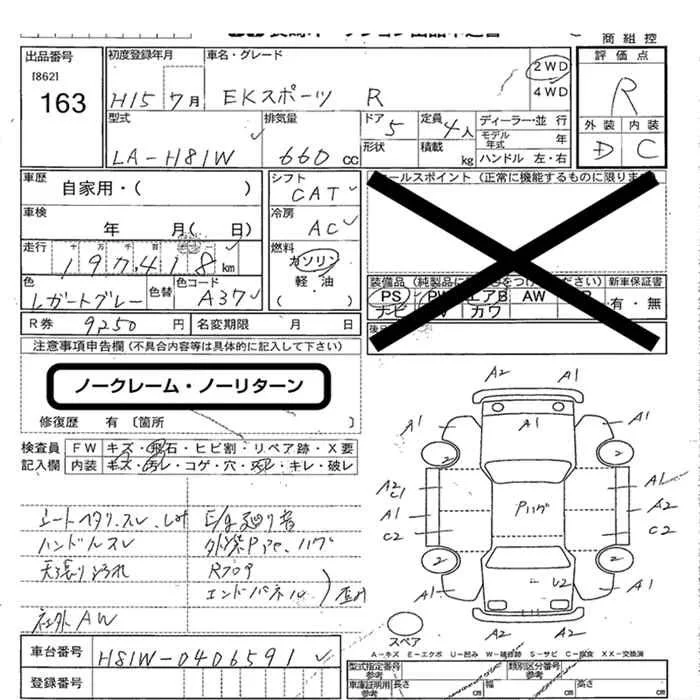 商組控
出品番号
[862]
163
初度登録年月
H15 7月
車名・グレード
EKスポーツ R
2WD
4WD
評価点
R
外装 内装
D C
型式
LA-H81W
排気量
660 cc
ドア 5
形状
定員 4人
積載 kg
ディーラー・並行
モデル年式 年
ハンドル 左・右
車歴 自家用・( )
シフト
CAT
セールスポイント (正常に機能するものに限ります
車検
年 月( 日)
冷房
AC
走行 十 万 千 百 十
197,418 km
燃料
ガソリン
軽油
( )
色
レガートグレー
色替
色コード
A37
装備品 (純製品に をつけてください) 新車保証書
PS PW エアB AW
ナビ カワ
有・無
R券 9250 円 名変期限 月 日
注意事項申告欄 (不具合内容等は具体的に記入して下さい)
ノークレーム・ノーリターン
修復歴 有 〔箇所 〕
検査員 FW キズ・飛石・ヒビ割・リペア跡・X要
記入欄 内装 キズ・汚レ・コゲ・穴・スレ・キレ・破レ
シートヘタリ、スレ、
ハンドルスレ
天張り汚れ
社外AW
E/g廻り音
Rフロア
エンドパネル
A2 A1
A1 A1 A1
2 2
A2
C1
A1
C2
Pハゲ
A1
A2
C2
2 2
A1 U2 A1
A2 A2
スペア
A-キズ E-エクボ U-凹み W-補修跡 S-サビ C-腐食 XX-交換済
車台番号 H81W-0406591
登録番号
型式指定番号
参考
類別区分番号
参考
車庫証明用
参考
長さ cm 幅 cm 高さ cm